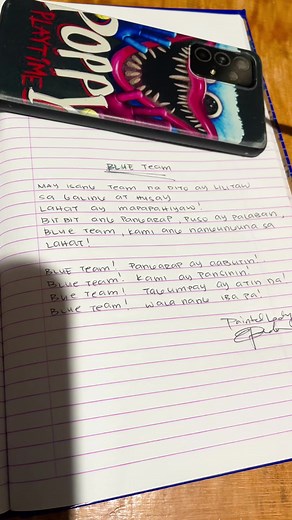 POPPY
PLAYTIME
BLUE Team
MAY ISANG TEAM NA DITO AY LILITAW
SA GALING AT HUSAY
LAHAT AY MAPAPAHIYAW!
BITBIT ANG PANGARAP, PUSO AY PALABAN,
BLUE TEAM, KAMI ANG NANGUNGUNA SA
LAHAT!
BLUE TEAM! PANGARAP AY AABUTIN!
BLUE TEAM! KAMI AY PANSININ!
BLUE TEAM! TAGUMPAY AY ATIN NA!
BLUE TEAM! WALA NANG IBA PA!
Painted Lady